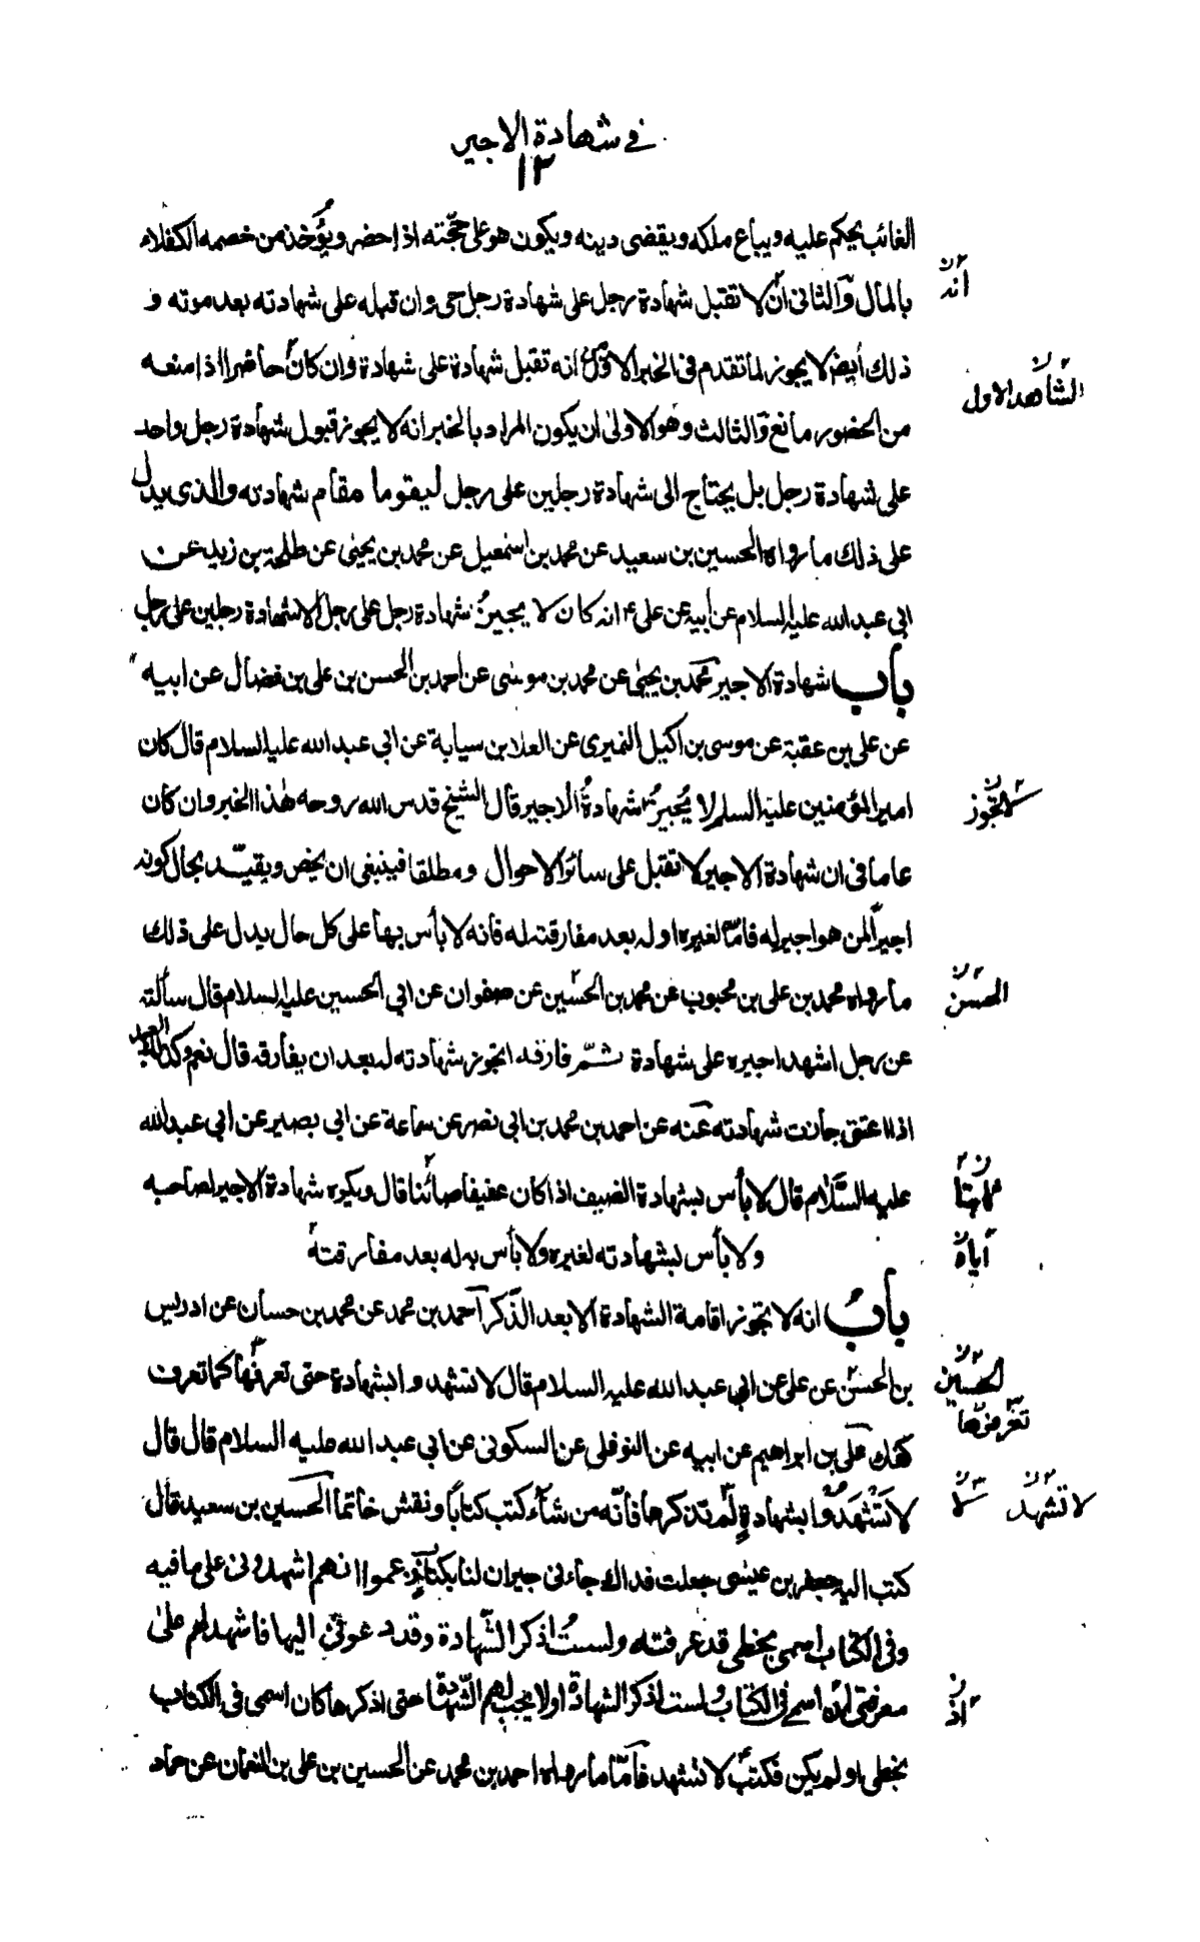 في شهادة الاجير
١٣
الغائب يحكم عليه ويباع ملكه ويقضى دينه ويكون هو على حجّته اذا حضر ويُؤخذ من خصمه الكفلاء
بالمال والثانى ان لا تقبل شهادة رجل على شهادة رجل حى وان قبله على شهادته بعد موته و
انه
ذلك أيضا لا يجوز لما تقدم فى الخبر الاول انه تقبل شهادة على شهادة وان كان حاضرا اذا منعه
الشاهد الاول
من الحضور مانع والثالث وهو الاولى ان يكون المراد بالخبر انه لا يجوز قبول شهادة رجل واحد
على شهادة رجل بل يحتاج الى شهادة رجلين على رجل ليقوما مقام شهادته والذى يدل
على ذلك ما رواه الحسين بن سعيد عن محمد بن اسمعيل عن محمد بن يحيى عن طلحة بن زيد عن
ابي عبد الله عليه السلام عن أبيه عن على ع انه كان لا يجيزُ شهادة رجل على رجل الا شهادة رجلين على رجل
باب شهادة الاجير محمد بن يحيى عن محمد بن موسى عن احمد بن الحسن بن على بن فضال عن ابيه
عن على بن عقبة عن موسى بن اكيل النميرى عن العلا بن سيابة عن ابي عبد الله عليه السلام قال كان
امير المؤمنين عليه السلم لا يُجيزُ شهادةُ الاجير قال الشيخ قدس الله روحه هذا الخبر وان كان
لا تجوز
عاما فى ان شهادة الاجير لا تقبل على سائر الاحوال ومطلقا فينبغى ان يخص ويقيّد بحال كونه
اجيراً لمن هو اجير له فامّا لغيره او له بعد مفارقته له فانه لا بأس بها على كل حال يدل على ذلك
ما رواه محمد بن على بن محبوب عن محمد بن الحسين عن صفوان عن ابي الحسين عليه السلام قال سألته
الحسن
عن رجل اشهد اجيره على شهادة ثمّ فارقه اتجوز شهادته له بعد ان يفارقه قال نعم وكذلك العبد
اذا اعتق جازت شهادته عنه عن احمد بن محمد بن ابي نصر عن سماعة عن ابي بصير عن ابي عبد الله
عليه السَّلام قال لا بأس بشهادة الضيف اذا كان عفيفا صائنا قال ويكره شهادة الاجير لصاحبه
ولا بأس بشهادته لغيره ولا بأس به له بعد مفارقته
اياه
بابُ انه لا تجوز اقامة الشهادة الا بعد الذّكر احمد بن محمد عن محمد بن حسان عن ادريس
بن الحسن عن على عن ابي عبد الله عليه السلام قال لا تشهدوا بشهادة حتى تعرفها كما تعرف
الحسين
تعرفونها
كفك على بن ابراهيم عن ابيه عن النوفلى عن السكونى عن ابي عبد الله عليه السلام قال قال
لا تَشْهَدُوا بشهادةٍ لم تذكرها فانّه من شآء كتب كتاباً ونقش خاتما الحسين بن سعيد قال
لا تشهد
لا
كتب اليه جعفر بن عيسى جعلت فداك جاءنى جيران لنا بكتاب زعموا انهم اشهدونى على ما فيه
وفى الكتاب اسمى بخطى قد عرفته ولستُ اذكر الشّهادة وقد دعونى اليها فاشهد لهم على
معرفتى ان اسمى فى الكتاب ولست اذكر الشهادة او لا يجب لهم الشّهادة حتى اذكرها كان اسمى فى الكتاب
اذ
بخطى او لم يكن فكتب لا تشهد فأمّا ما رواه احمد بن محمد عن الحسين بن على بن النعمان عن حماد